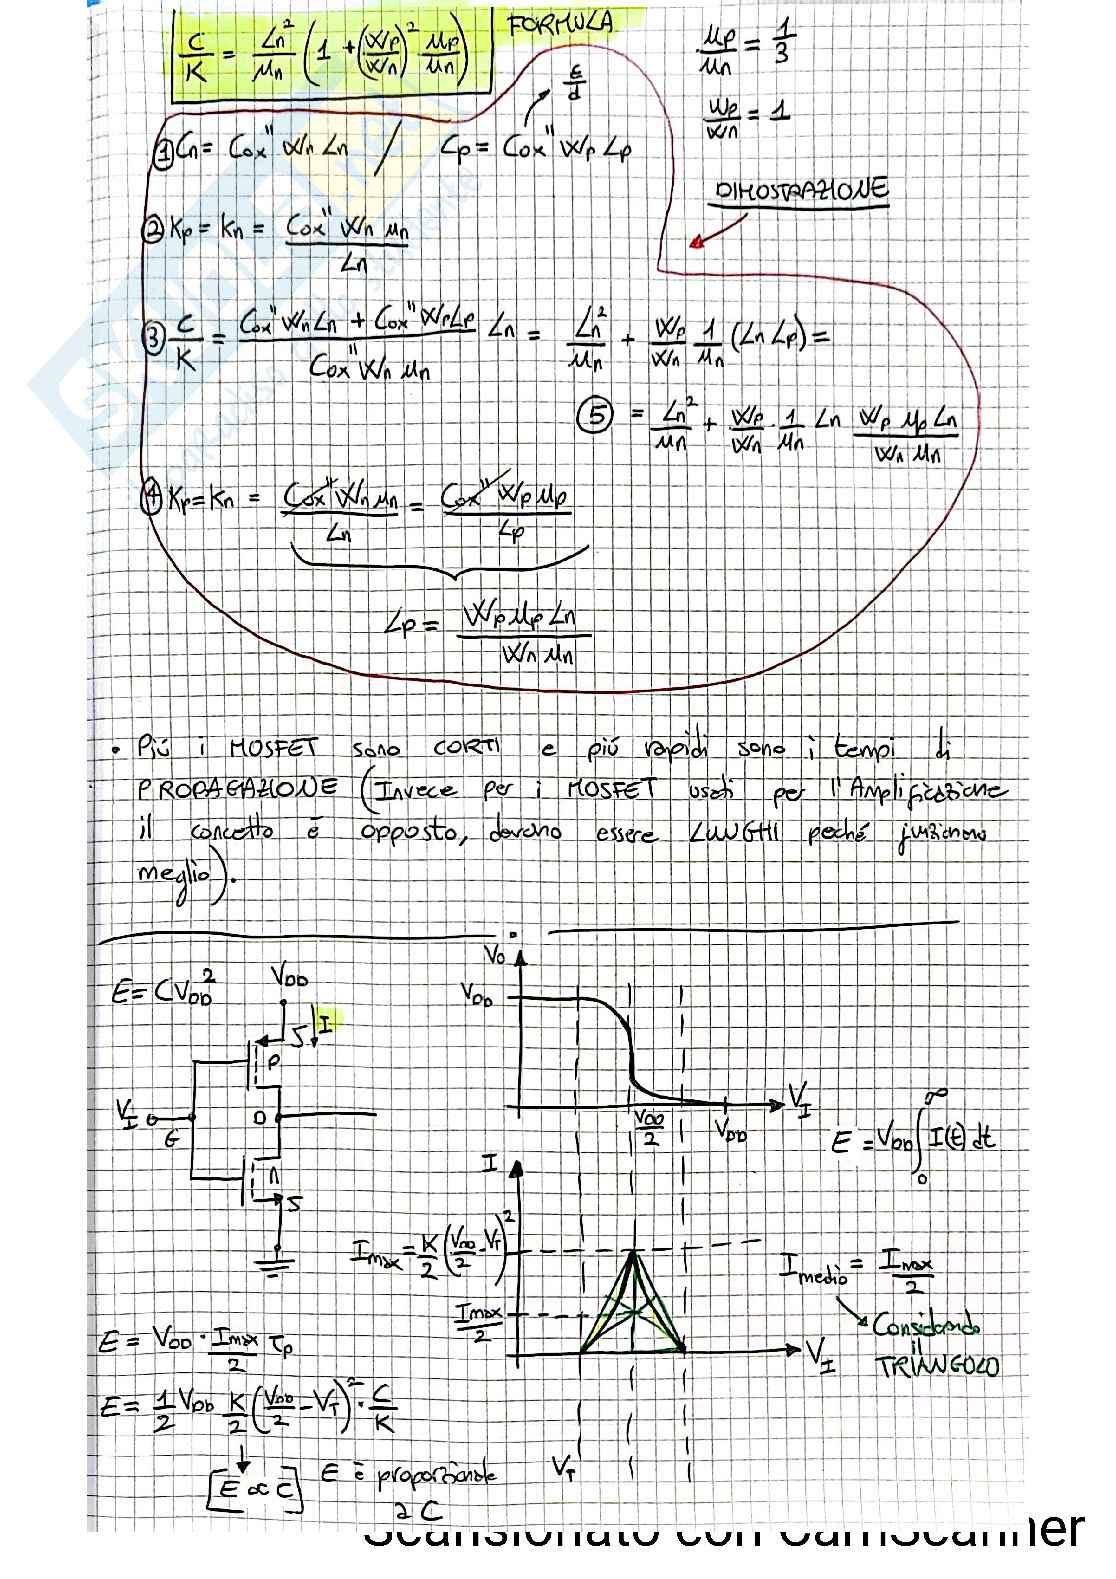 C/K = Ln²/μn (1 + (Wp/Wn)² μp/μn) FORMULA
μp/μn = 1/3
Wp/Wn = 1
ε/d
① Cn = Cox'' Wn Ln / Cp = Cox'' Wp Lp
DIMOSTRAZIONE
② Kp = Kn = Cox'' Wn μn / Ln
③ C/K = (Cox'' Wn Ln + Cox'' Wp Lp) / (Cox'' Wn μn) Ln = Ln²/μn + Wp/Wn 1/μn (Ln Lp) =
⑤ = Ln²/μn + Wp/Wn · 1/μn Ln (Wp μp Ln)/(Wn μn)
④ Kp = Kn = Cox'' Wn μn / Ln = Cox'' Wp μp / Lp
Lp = Wp μp Ln / Wn μn
• Più i MOSFET sono CORTI e più rapidi sono i tempi di
PROPAGAZIONE (Invece per i MOSFET usati per l'Amplificazione
il concetto è opposto, devono essere LUNGHI peché funzionano
meglio).
E = C VDD²
VDD
I
S
P
VI
G
D
n
S
Vo
VDD
VDD/2
VDD
VI
E = VDD ∫₀^∞ I(t) dt
I
Imax = K/2 (VDD/2 - VT)²
Imax/2
VI
VT
Imedio = Imax/2
Considerando
il
TRIANGOLO
E = VDD · Imax/2 τp
E = 1/2 VDD K/2 (VDD/2 - VT)² · C/K
[E ∝ C] E è proporzionale
a C
Scansionato con CamScanner